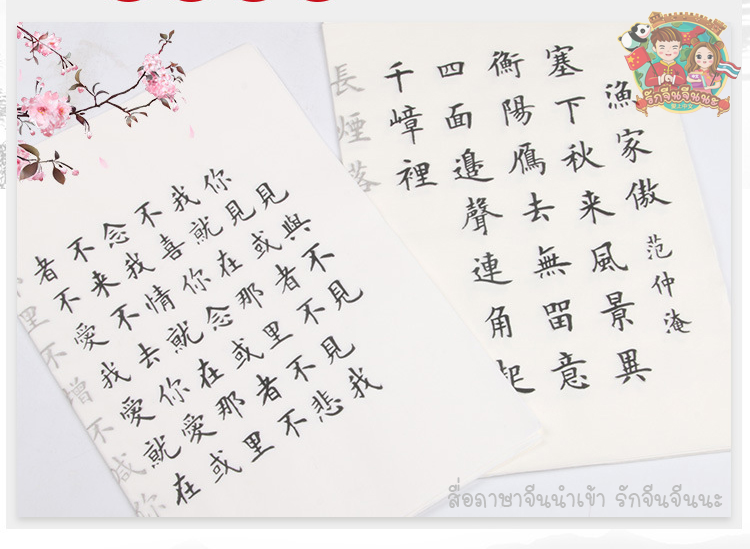 漁家傲 范仲淹
塞下秋来風景異
衡陽鴈去無畱意
四面邉聲連角起
千嶂裡
長煙落
見與不見
你見或者不見我
我就在那里不悲
不喜你念或者不
念我情就在那里
不来不去你愛或
者不愛我愛就在
里不增不減你
รักจีนจีนนะ
สื่อภาษาจีนนำเข้า รักจีนจีนนะ